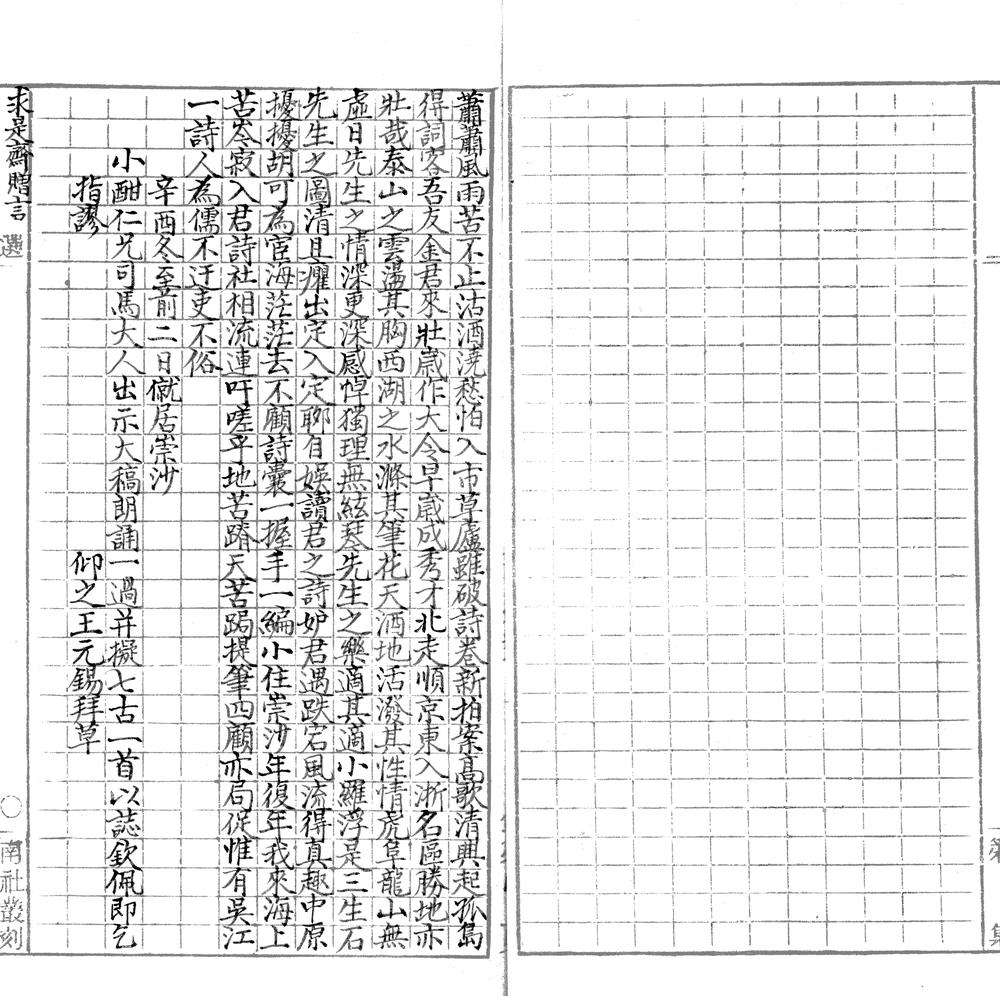 蕭蕭風雨苦不止沽酒澆愁怕入市草廬雖破詩卷新拍案高歌清興起孤島
得詞客吾友金君來壯歲作大令早歲成秀才北走順京東入浙名區勝地亦
壯哉泰山之雲盪其胸西湖之水滌其筆花天酒地活潑其性情虎阜龍山無
虛日先生之情深更深感悼獨理無絃琴先生之樂適其適小羅浮是三生石
先生之圖清且癯出定入定聊自娛讀君之詩妒君遇跌宕風流得真趣中原
擾擾胡可為宦海茫茫去不顧詩囊一握手一編小住崇沙年復年我來海上
苦岑寂入君詩社相流連吁嗟乎地苦蹐天苦跼提筆四顧亦局促惟有吳江
一詩人為儒不迂吏不俗
辛酉冬至前二日僦居崇沙
小酣仁兄司馬大人出示大稿朗誦一過并擬七古一首以誌欽佩即乞
指謬
仰之王元錫拜草
求是齋贈言
選
○
南社叢刻
一
集